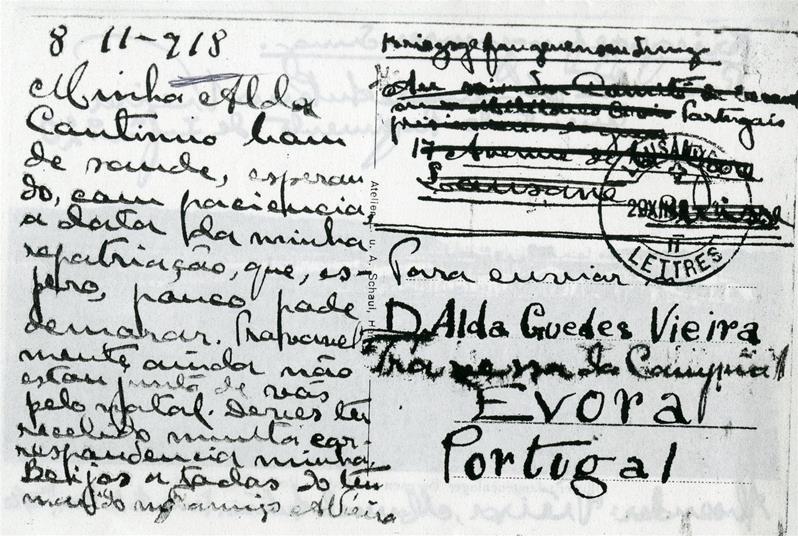 8-11-918
Minha Alda
Continuo bom
de saude, esperan
do, com paciencia,
a data da minha
repatriação, que, es-
pero, pouco pode
demorar. Provavel-
mente ainda não
estou junto de vós
pelo natal. Deves ter
recebido muita cor-
respondencia minha
Beijos a todos do teu
marido m.to amigo AVieira
Atelier u. A. Schaul, H
Kriegsgefangenensendung
Portugais
17 Avenue de
Lausanne
LAUSANNE
29 XII
LETTRES
Para enviar
D. Alda Guedes Vieira
Travessa da
Evora
Portugal